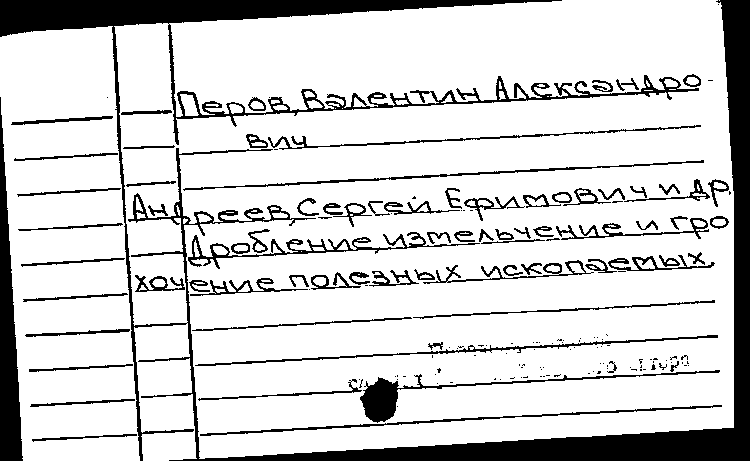 Перов, Валентин Александро-
вич
Андреев, Сергей Ефимович и др.
Дробление, измельчение и гро
хочение полезных ископаемых.